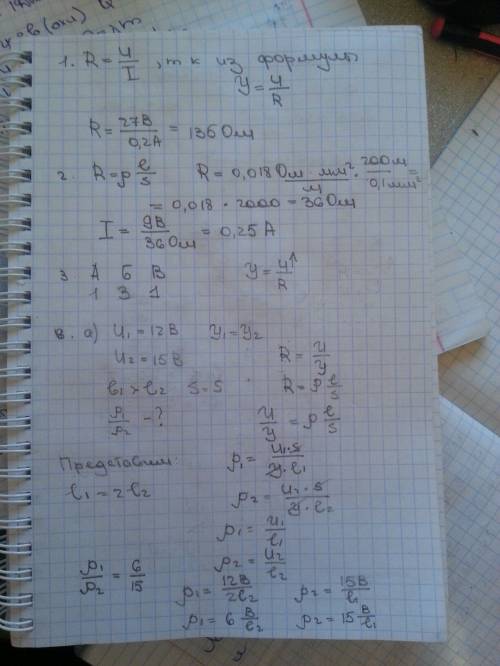 1. R = U/I , т к из формулы
У = U/R
R = 27В/0,2А = 136 Ом
2. R = ρ l/s R = 0,018 Ом · мм²/м · 200м/0,1 мм² =
= 0,018 · 2000 = 36 Ом
I = 9В/36 Ом = 0,25 А
3 А Б В У = U↑/R
1 3 1
в. а) U₁ = 12В У₁ = У₂
U₂ = 15В R = U/У
l₁ > l₂ S = S R = ρ l/s
ρ₁/ρ₂ - ? U/У = ρ l/s
Представим: ρ₁ = U₁·s/У·l₁
l₁ = 2 l₂ ρ₂ = U₂·s/У·l₂
ρ₁ = U₁/l₁
ρ₂ = U₂/l₂
ρ₁/ρ₂ = 6/15 ρ₁ = 12В/2l₂ ρ₂ = 15В/l₁
ρ₁ = 6 В/l₂ ρ₂ = 15 В/l₁